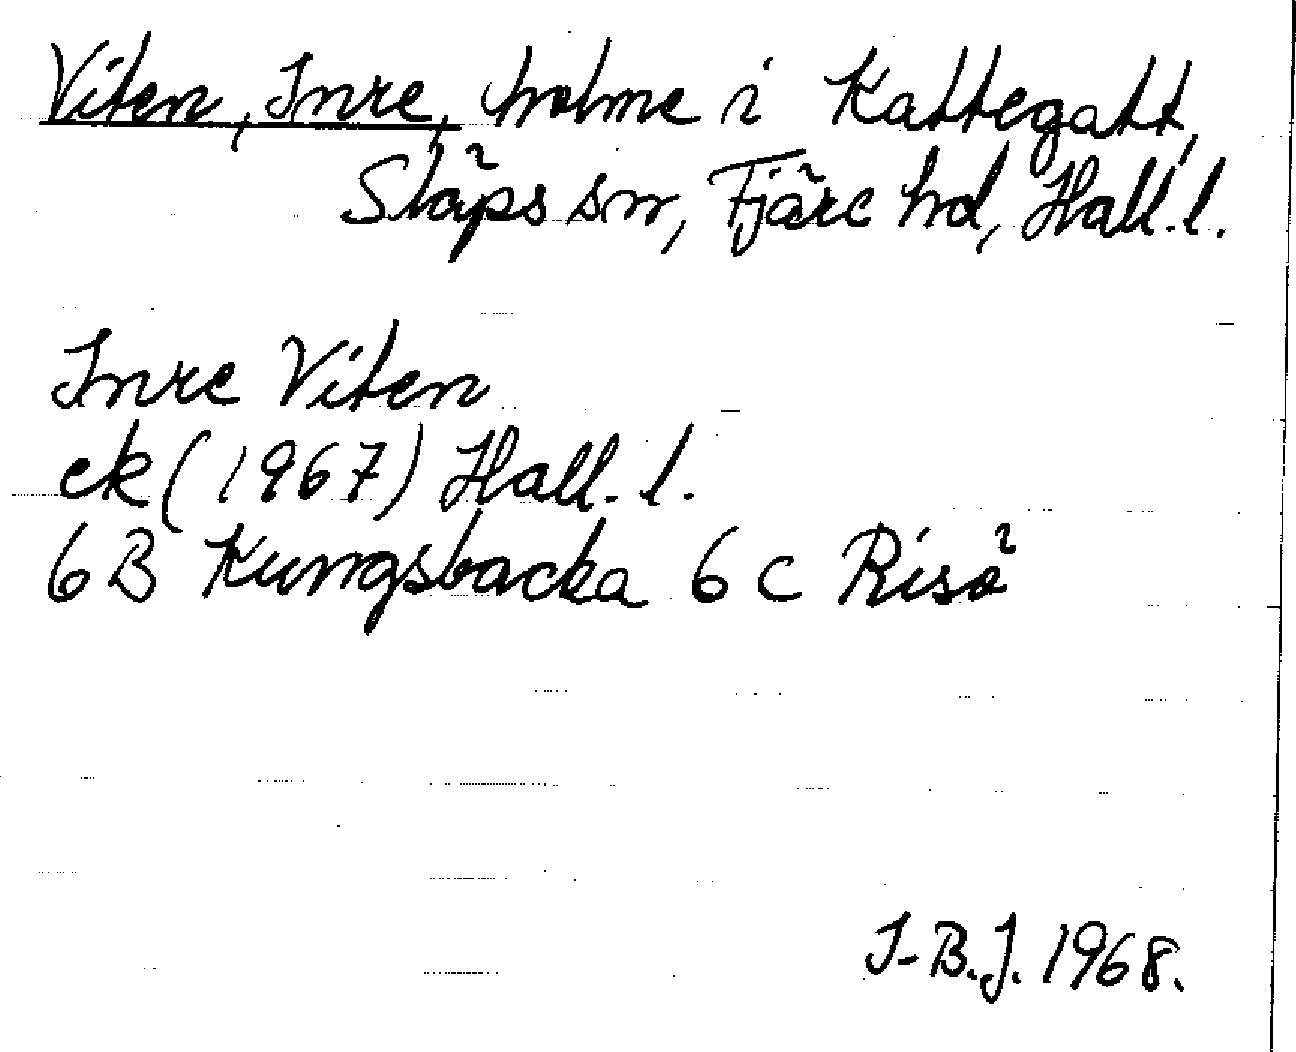 Viten, Inre, holme i Kattegatt,
Släps sn, Fjäre hd, Hall.l.
Inre Viten
ek (1967) Hall. l.
6B Kungsbacka 6 c Riså
I-B.J. 1968.